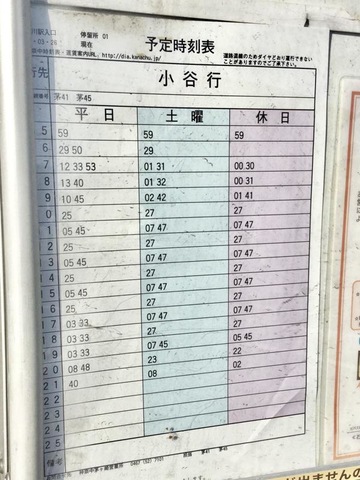 川駅入口 停留所 01
現在
http://dia.kanachu.jp/
予定時刻表
道路混雑のためダイヤどおり運行できない
ことがありますのでご了承下さい。
行先 小谷行
茅41 茅45
平日 土曜 休日
5 59 59 59
6 29 50 29
7 12 33 53 01 31 00 30
8 13 40 01 32 00 31
9 10 45 02 42 01 41
0 25 27 27
1 05 45 07 47 07 47
2 25 27 27
3 05 45 07 47 07 47
4 25 27 27
5 05 45 07 47 07 47
6 25 27 27
7 03 33 07 47 07 47
18 03 33 27 27
19 03 33 07 45 05 45
20 08 48 23 22
21 40 08 02
22
23
24
25
備考